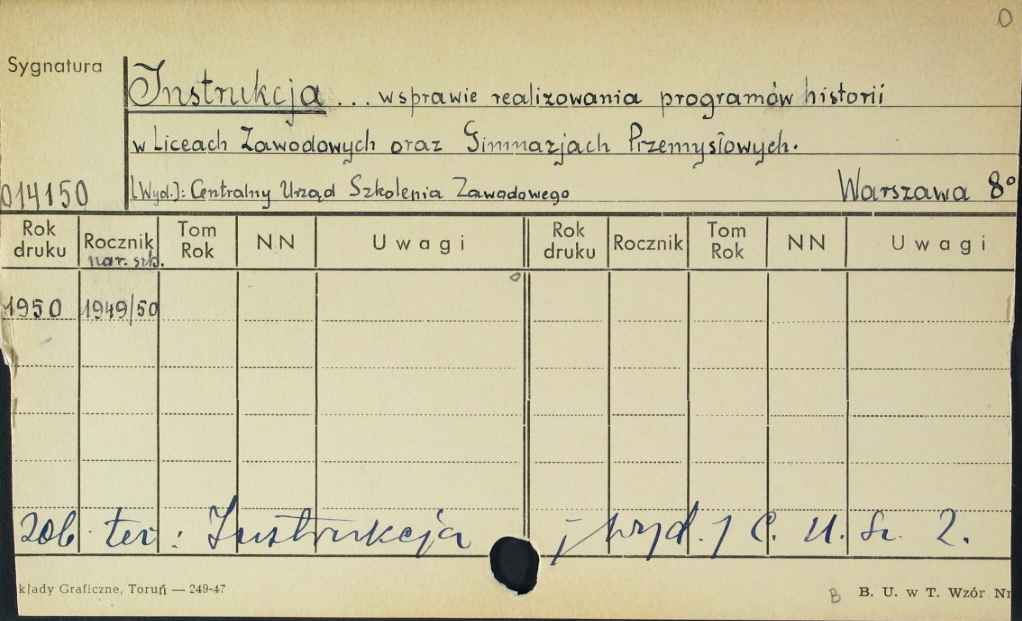 0
Sygnatura
Instrukcja ... wsprawie realizowania programów historii
w Liceach Zawodowych oraz Gimnazjach Przemysłowych.
014150 [Wyd.]: Centralny Urząd Szkolenia Zawodowego Warszawa 8°
Rok druku Rocznik Tom Rok NN Uwagi Rok druku Rocznik Tom Rok NN Uwagi
szk.
1950 1949/50
zob. też: Instrukcja wyd. C. U. Sz. Z.
kłady Graficzne, Toruń — 249-47 B B. U. w T. Wzór Nr